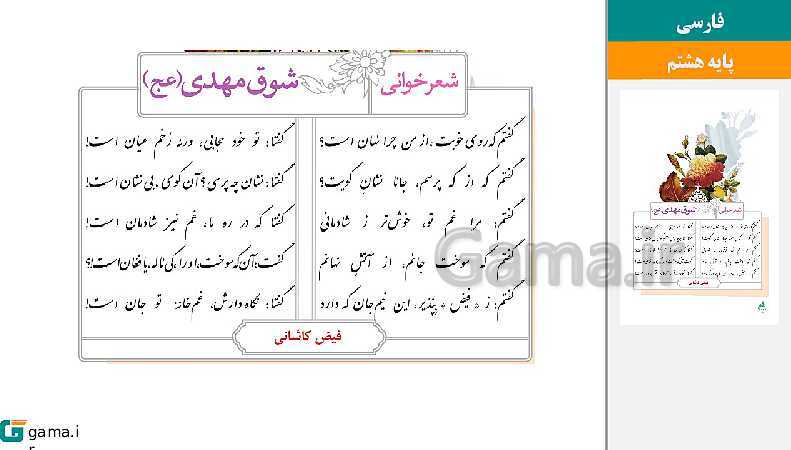 فارسی
پایه هشتم
شعرخوانی شوق مهدی (عج)
گفتم که روی خوبت، از من چرا نهان است؟ گفتا: تو خود حجابی، ورنه رُخم عیان است!
گفتم که از که پرسم، جانا نشانِ کویت؟ گفتا: نشان چه پرسی؟ آن کوی، بی نشان است!
گفتم: مرا غم تو، خوش‌تر ز شادمانی گفتا که در ره ما، غم نیز شادمان است!
گفتم که سوخت جانم، از آتشِ نهانم گفت، آن که سوخت، او را، کی ناله یا فغان است؟!
گفتم: ز «فیض» بپذیر، این نیم جان که دارد گفتا: نگاه دارش، غم‌خانهٔ تو جان است!
فیض کاشانی
Gama.ir
gama.i
r
شعرخوانی شوق مهدی (عج)
فیض کاشانی